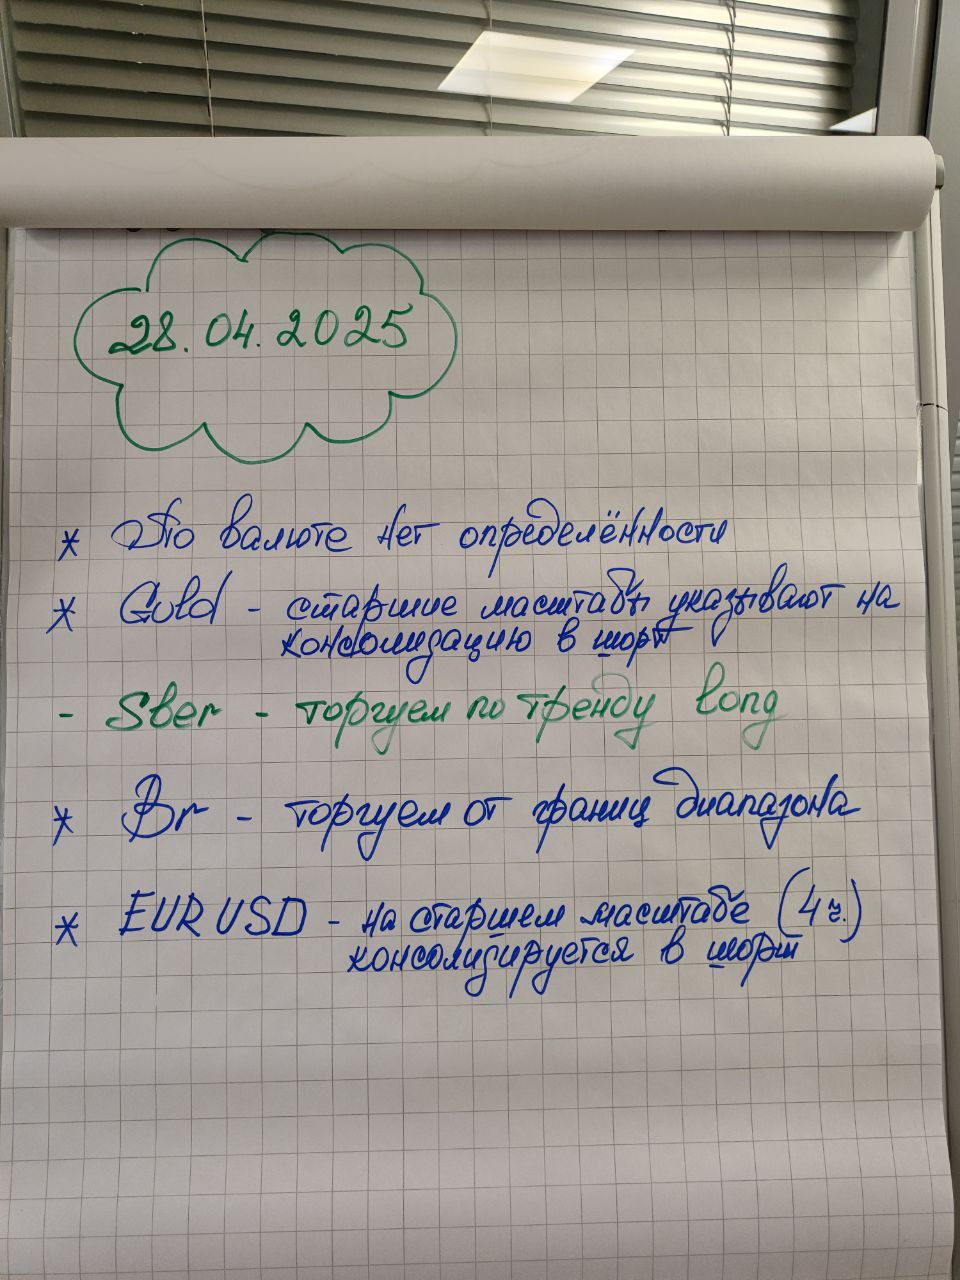 28.04.2025
* По валюте нет определённости
* Gold - старшие масштабы указывают на
консолидацию в шорт
- Sber - торгуем по тренду long
* Br - торгуем от границ диапазона
* EURUSD - на старшем масштабе (4 ч.)
консолидируется в шорт